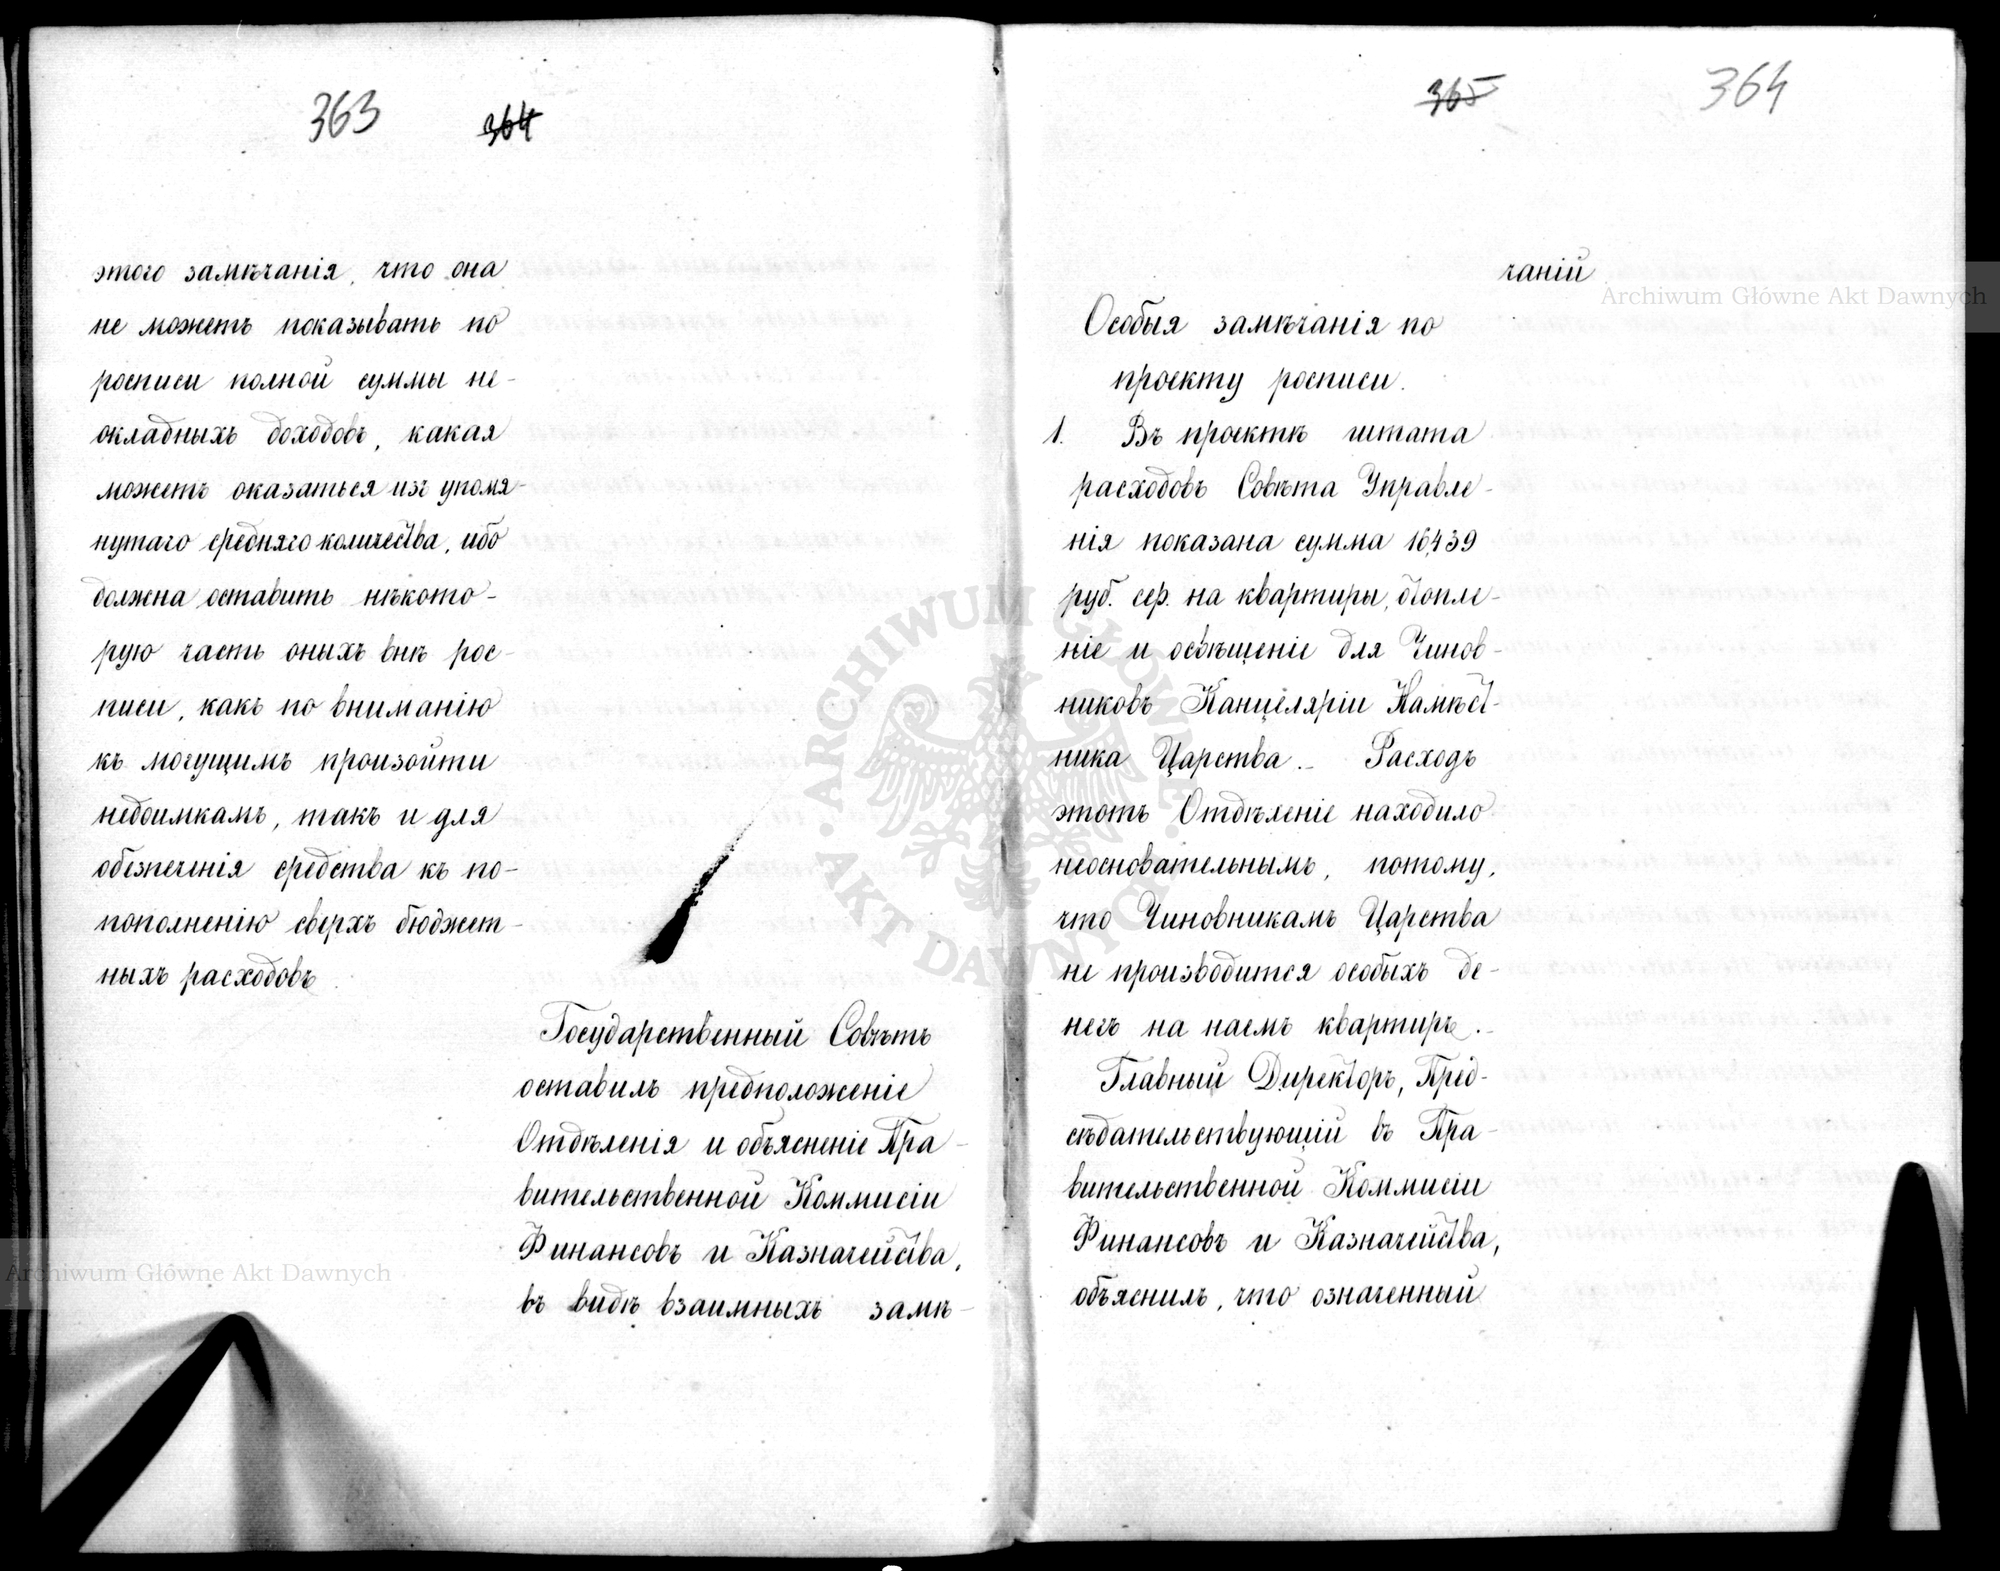 363 364
этого замѣчанія, что она
не можетъ показывать по
росписи полной суммы не-
окладныхъ доходовъ, какая
можетъ оказаться изъ упомя-
нутаго средняго количества, ибо
должна оставить нѣкото-
рую часть оныхъ внѣ рос-
писи, какъ по вниманію
къ могущимъ произойти
недоимкамъ, такъ и для
обезпеченія средства къ по-
пополненію сверхъ бюджет-
ныхъ расходовъ
Государственный Совѣтъ
оставилъ предположеніе
Отдѣленія и объясненіе Пра-
вительственной Коммисіи
Финансовъ и Казначейства,
въ видѣ взаимныхъ замѣ-
365 364
чаній
Особыя замѣчанія по
проекту росписи.
1. Въ проектѣ штата
расходовъ Совѣта Управле-
нія показана сумма 16,439
руб. сер. на квартиры, отопле-
ніе и освѣщеніе для Чинов-
никовъ Канцеляріи Намѣст-
ника Царства. – Расходъ
этотъ Отдѣленіе находило
неосновательнымъ, потому,
что Чиновникамъ Царства
не производится особыхъ де-
негъ на наемъ квартиръ. –
Главный Директоръ, Пред-
сѣдательствующій въ Пра-
вительственной Коммисіи
Финансовъ и Казначейства,
объяснилъ, что означенный
Archiwum Główne Akt Dawnych
Archiwum Główne Akt Dawnych
ARCHIWUM GŁÓWNE
AKT DAWNYCH